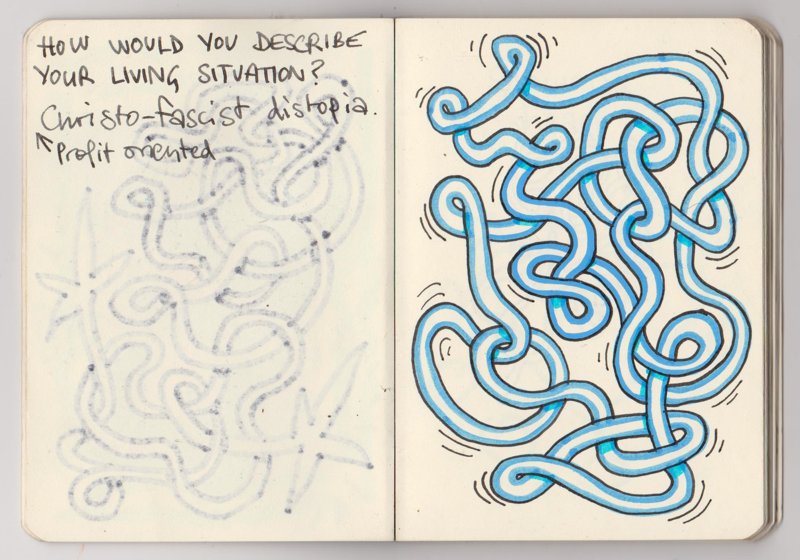 HOW WOULD YOU DESCRIBE
YOUR LIVING SITUATION?
Christo-fascist distopia.
Profit oriented